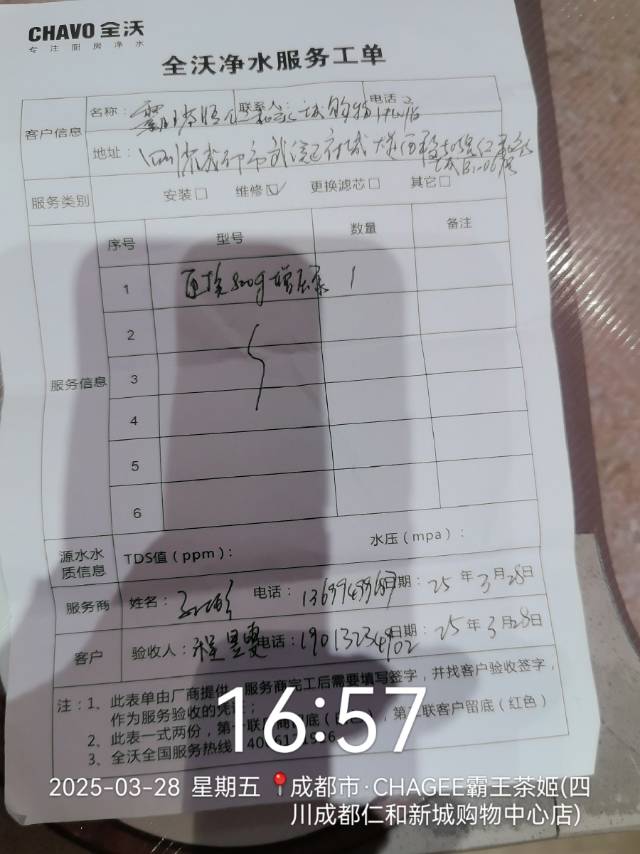 CHAVO 全沃
专注厨房净水
全沃净水服务工单
客户信息
名称： 联系人： 购物中心店
电话：
地址：四川成都市武侯区府城大道西段
服务类别
安装□ 维修☑ 更换滤芯□ 其它□
服务信息
序号 型号 数量 备注
1 更换800g增压泵 1
2
3
4
5
6
源水水质信息
TDS值（ppm）： 水压（mpa）：
服务商 姓名： 电话： 日期：25年3月28日
客户 验收人：程 电话：19013234902 日期：25年3月28日
注：1、此表单由厂商提供，服务商完工后需要填写签字，并找客户验收签字，
作为服务验收的凭
2、此表一式两份，第一联 留底（ ），第 联客户留底（红色）
3、全沃全国服务热线
16:57
2025-03-28 星期五 成都市·CHAGEE霸王茶姬(四
川成都仁和新城购物中心店)